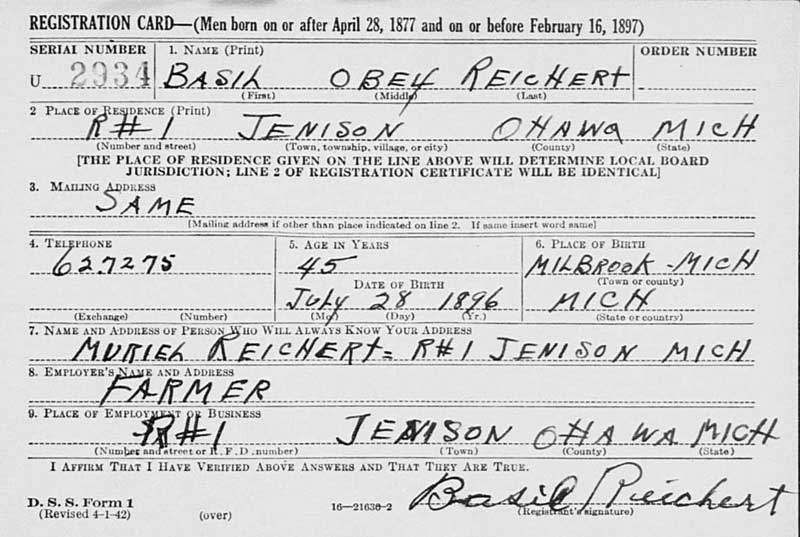 REGISTRATION CARD—(Men born on or after April 28, 1877 and on or before February 16, 1897)
SERIAL NUMBER 1. NAME (Print) ORDER NUMBER
U 2934 BASIL OBEY REICHERT
(First) (Middle) (Last)
2 PLACE OF RESIDENCE (Print)
R#1 JENISON OTTAWA MICH
(Number and street) (Town, township, village, or city) (County) (State)
[THE PLACE OF RESIDENCE GIVEN ON THE LINE ABOVE WILL DETERMINE LOCAL BOARD
JURISDICTION; LINE 2 OF REGISTRATION CERTIFICATE WILL BE IDENTICAL]
3. MAILING ADDRESS
SAME
[Mailing address if other than place indicated on line 2. If same insert word same]
4. TELEPHONE 5. AGE IN YEARS 6. PLACE OF BIRTH
627275 45 MILBROOK - MICH
DATE OF BIRTH (Town or county)
July 28 1896 MICH
(Exchange) (Number) (Mo.) (Day) (Yr.) (State or country)
7. NAME AND ADDRESS OF PERSON WHO WILL ALWAYS KNOW YOUR ADDRESS
MURIEL REICHERT = R#1 JENISON MICH
8. EMPLOYER'S NAME AND ADDRESS
FARMER
9. PLACE OF EMPLOYMENT OR BUSINESS
R#1 JENISON OTTAWA MICH
(Number and street or R. F. D. number) (Town) (County) (State)
I AFFIRM THAT I HAVE VERIFIED ABOVE ANSWERS AND THAT THEY ARE TRUE.
Basil Reichert
D. S. S. Form 1
(Revised 4-1-42) (over) 16—21630-2 (Registrant's signature)